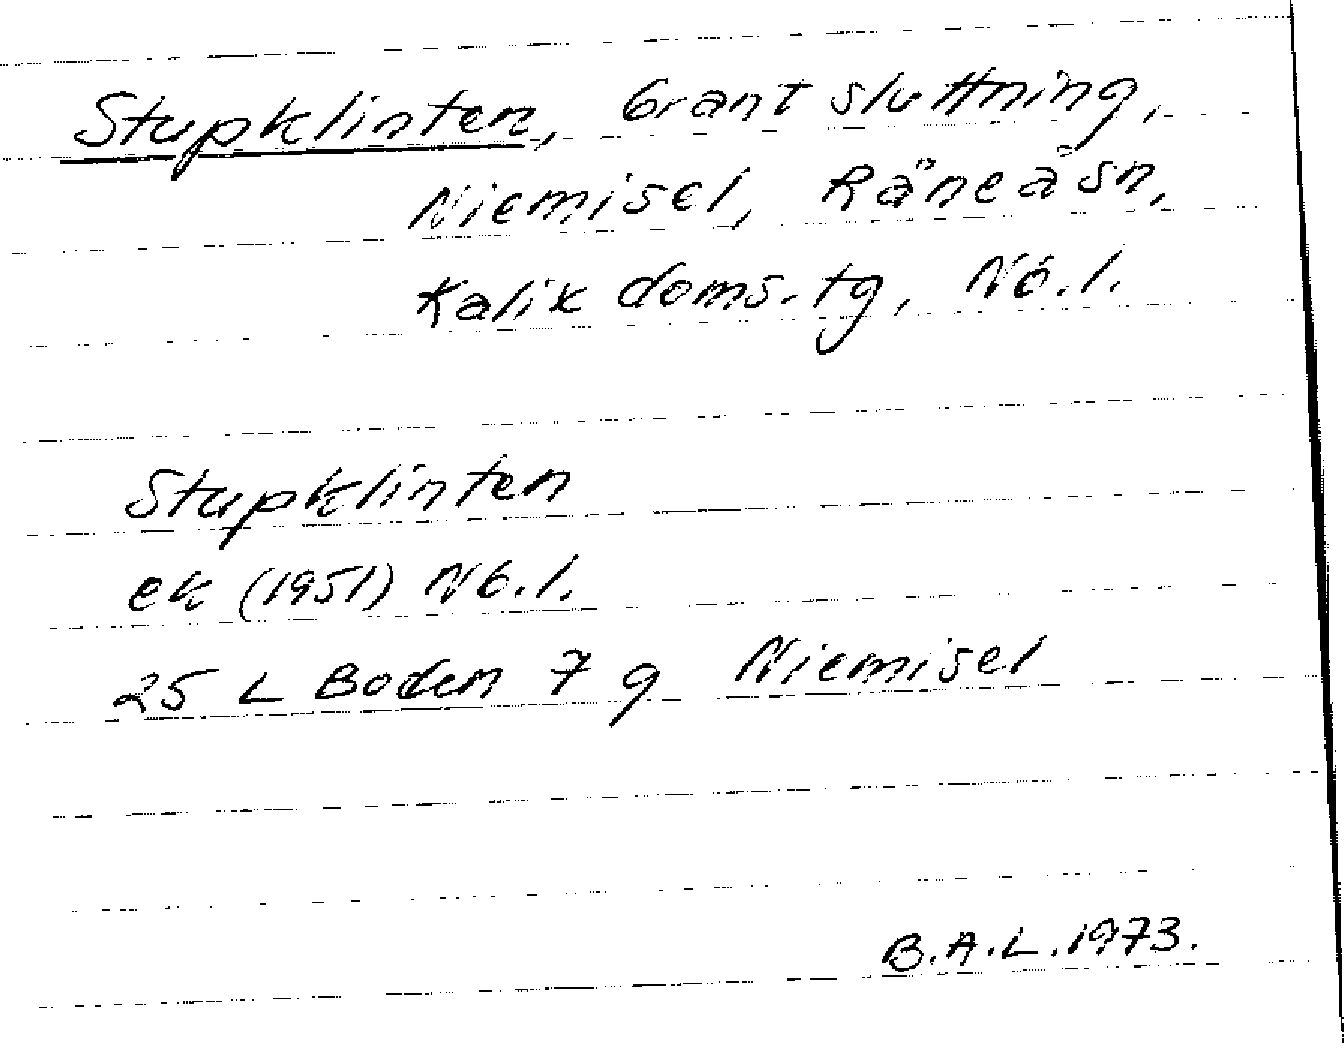 Stupklinten, Brant sluttning,
Niemisel, Råneå sn,
Kalix doms. tg, Nb. l.
Stupklinten
ek (1951) Nb. l.
25 L Boden 7 g Niemisel
B.A.L. 1973.